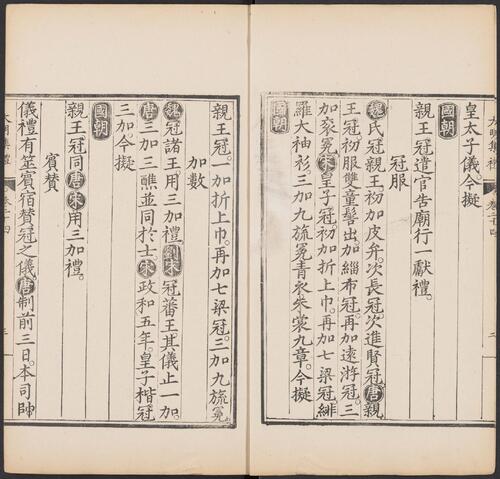 皇太子儀。今擬
國朝
親王冠遣官告廟行一獻禮。
冠服
魏氏冠親王初加皮弁。次長冠。次進賢冠。唐親
王冠初服雙童髻出。加緇布冠。再加遠游冠。三
加衮冕。宋皇子冠初加折上巾。再加七梁冠緋
羅大袖衫。三加九旒冕青衣朱裳九章。今擬
國朝
親王冠。一加折上巾。再加七梁冠。三加九旒冕。
加數
魏冠諸王用三加禮。劉宋冠蕃王其儀止一加。
唐三加三醮並同於士。宋政和五年。皇子楷冠
三加。今擬
國朝
親王冠同唐宋用三加禮。
賓贊
儀禮有筮賓宿贊冠之儀。唐制前三日。本司帥
大明集禮